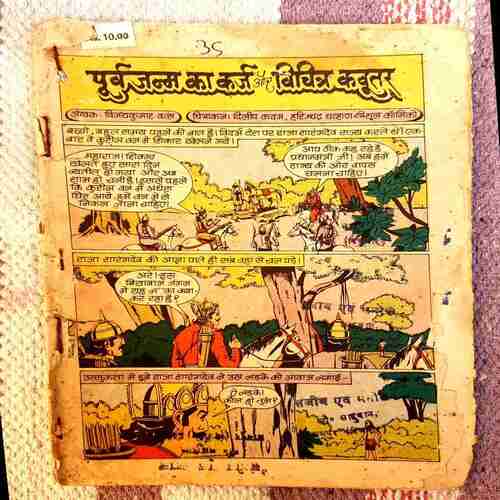 Rs. 10.00
35
पूर्वजन्म का कर्ज और विचित्र कबूतर
लेखक: विनयकुमार वत्स चित्रांकन: दिलीप कदम, हरिश्चंद्र चव्हाण
बच्चो, बहुत समय पहले की बात है। विदर्भ देश पर राजा सारंगदेव राज्य करते थे। एक
बार वे कुरील वन में शिकार खेलने गये।
महाराज! शिकार
खेलते हुए सारा दिन
व्यतीत हो गया और अब
शाम हो चली है। इससे पहले
कि कुरील वन में अंधेरा
घिर आये हमें वन में से
निकल जाना चाहिए।
आप ठीक कह रहे हैं
प्रधानमंत्री जी। अब हमें
राज्य की ओर वापस
चलना चाहिए।
राजा सारंगदेव की आज्ञा पाते ही सब वहां से चल पड़े।
अरे! इस
बियाबान जंगल
में यह लड़का क्या
कर रहा है?
उत्सुकता में डूबे राजा सारंगदेव ने उस लड़के को आवाज लगाई-
ऐ लड़के।
कौन हो तुम?